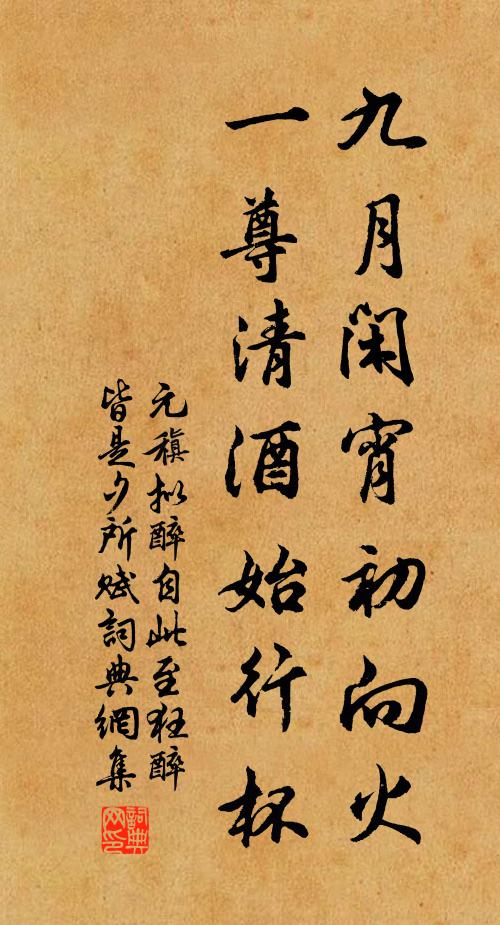 九月閑宵初向火
一尊清酒始行杯
元稹拟醉自此至狂醉
皆是夕所赋詞典網集
詞典
网印